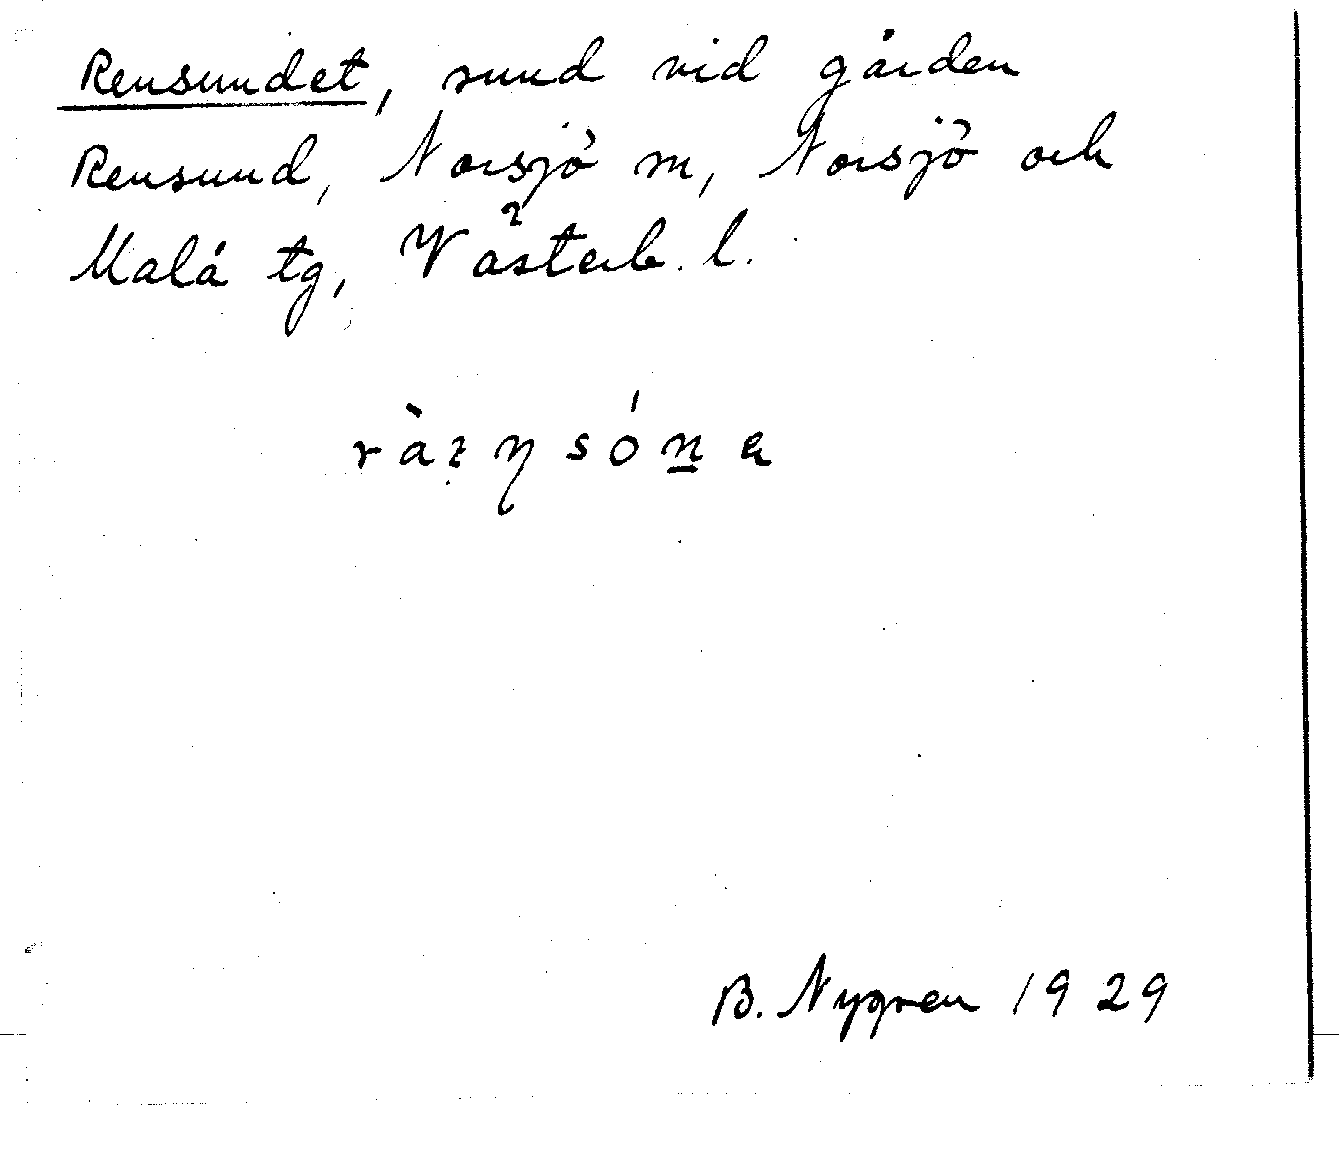 Rensundet, sund vid gården
Rensund, Norsjö sn, Norsjö och
Malå tg, Västerb. l.
B. Nygren 1929